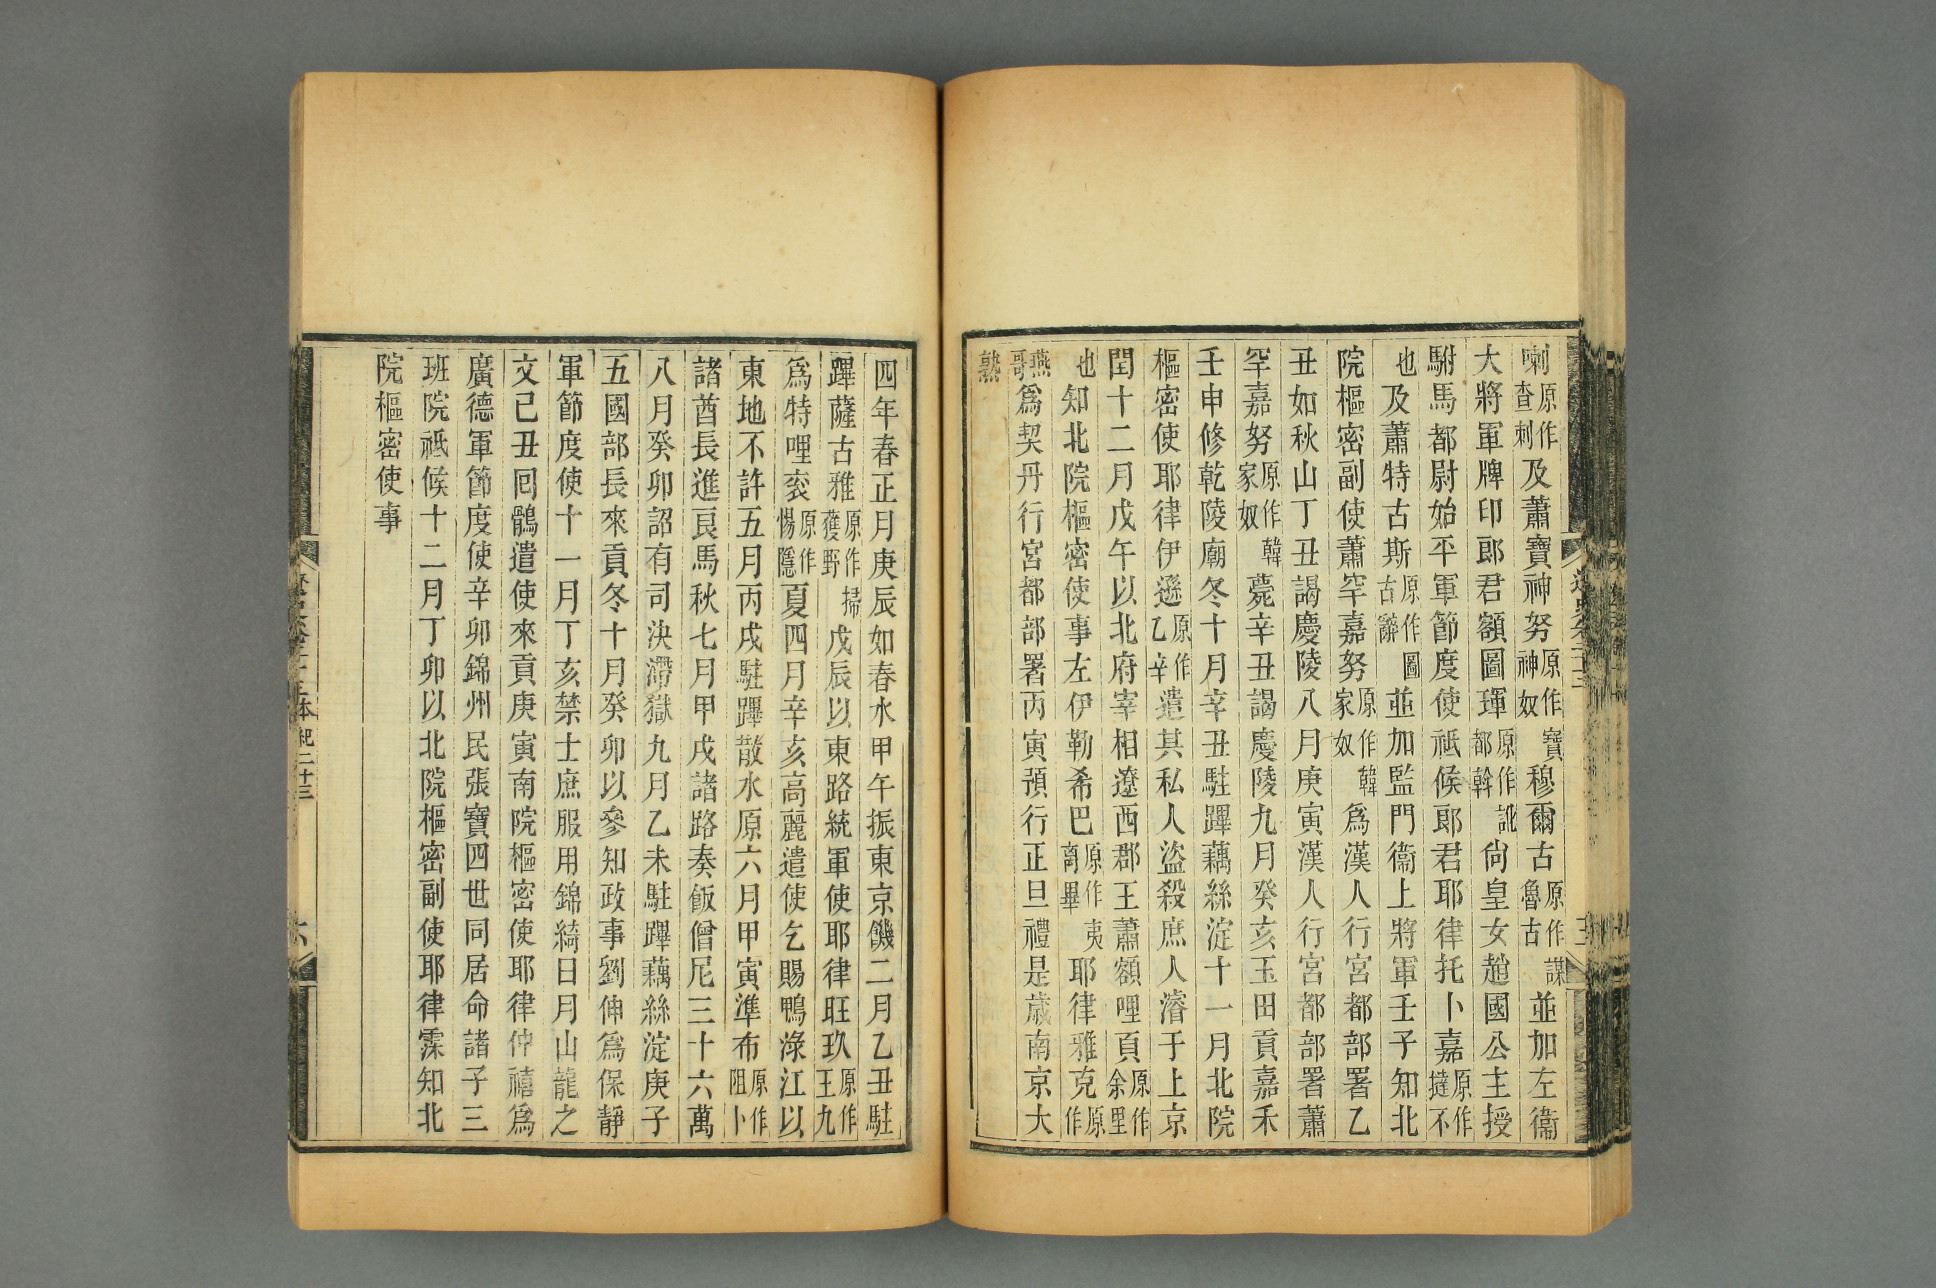 喇原作查刺及蕭寶神努原作寶神奴穆爾古原作謀魯古並加左衞
大將軍牌印郎君額圖琿原作訛都斡尙皇女趙國公主授
駙馬都尉始平軍節度使祗候郎君耶律托卜嘉原作撻不
也及蕭特古斯原作圖古辭並加監門衞上將軍壬子知北
院樞密副使蕭罕嘉努原作韓家奴爲漢人行宮都部署乙
丑如秋山丁丑謁慶陵八月庚寅漢人行宮都部署蕭
罕嘉努原作韓家奴薨辛丑謁慶陵九月癸亥玉田貢嘉禾
壬申修乾陵廟冬十月辛丑駐蹕藕絲淀十一月北院
樞密使耶律伊遜原作乙辛遣其私人盜殺庶人濬于上京
閏十二月戊午以北府宰相遼西郡王蕭額哩頁原作余里
也知北院樞密使事左伊勒希巴原作夷离畢耶律雅克原作
燕哥爲契丹行宮都部署丙寅預行正旦禮是歲南京大
熟
四年春正月庚辰如春水甲午振東京饑二月乙丑駐
蹕薩古雅原作掃獲野戊辰以東路統軍使耶律旺玖原作王九
爲特哩衮原作惕隱夏四月辛亥高麗遣使乞賜鴨淥江以
東地不許五月丙戌駐蹕散水原六月甲寅準布原作阻卜
諸酋長進良馬秋七月甲戌諸路奏飯僧尼三十六萬
八月癸卯詔有司決滯獄九月乙未駐蹕藕絲淀庚子
五國部長來貢冬十月癸卯以參知政事劉伸爲保靜
軍節度使十一月丁亥禁士庶服用錦綺日月山龍之
文己丑回鶻遣使來貢庚寅南院樞密使耶律仲禧爲
廣德軍節度使辛卯錦州民張寶四世同居命諸子三
班院祗候十二月丁卯以北院樞密副使耶律霂知北
院樞密使事
遼史卷二十三本紀二十三
六